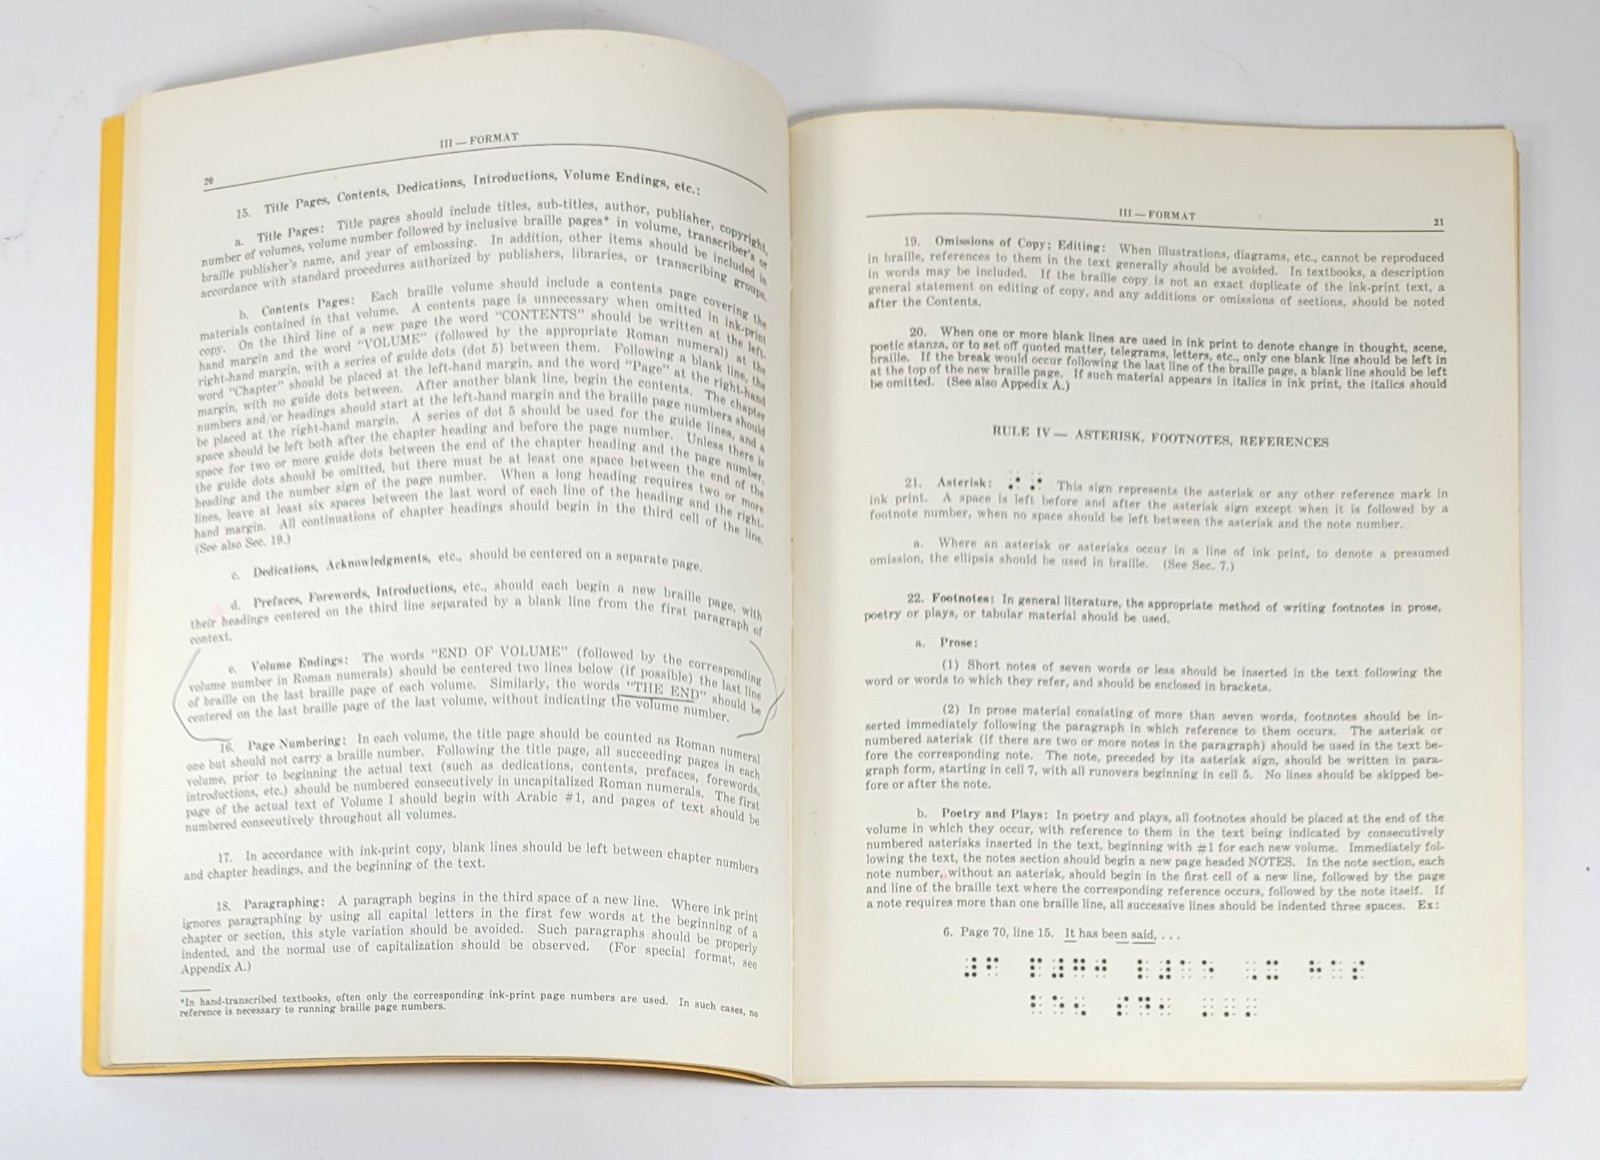 20
III — FORMAT
15. Title Pages, Contents, Dedications, Introductions, Volume Endings, etc.:
a. Title Pages: Title pages should include titles, sub-titles, author, publisher, copyright,
number of volumes, volume number followed by inclusive braille pages* in volume, transcriber's or
braille publisher's name, and year of embossing. In addition, other items should be included in
accordance with standard procedures authorized by publishers, libraries, or transcribing groups.
b. Contents Pages: Each braille volume should include a contents page covering the
materials contained in that volume. A contents page is unnecessary when omitted in ink-print
copy. On the third line of a new page the word "CONTENTS" should be written at the left-
hand margin and the word "VOLUME" (followed by the appropriate Roman numeral) at the
right-hand margin, with a series of guide dots (dot 5) between them. Following a blank line, the
word "Chapter" should be placed at the left-hand margin, and the word "Page" at the right-hand
margin, with no guide dots between. After another blank line, begin the contents. The chapter
numbers and/or headings should start at the left-hand margin and the braille page numbers should
be placed at the right-hand margin. A series of dot 5 should be used for the guide lines, and a
space should be left both after the chapter heading and before the page number. Unless there is
space for two or more guide dots between the end of the chapter heading and the page number,
the guide dots should be omitted, but there must be at least one space between the end of the
heading and the number sign of the page number. When a long heading requires two or more
lines, leave at least six spaces between the last word of each line of the heading and the right-
hand margin. All continuations of chapter headings should begin in the third cell of the line.
(See also Sec. 19.)
c. Dedications, Acknowledgments, etc., should be centered on a separate page.
d. Prefaces, Forewords, Introductions, etc., should each begin a new braille page, with
their headings centered on the third line separated by a blank line from the first paragraph of
context.
e. Volume Endings: The words "END OF VOLUME" (followed by the corresponding
volume number in Roman numerals) should be centered two lines below (if possible) the last line
of braille on the last braille page of each volume. Similarly, the words "THE END" should be
centered on the last braille page of the last volume, without indicating the volume number.
16. Page Numbering: In each volume, the title page should be counted as Roman numeral
one but should not carry a braille number. Following the title page, all succeeding pages in each
volume, prior to beginning the actual text (such as dedications, contents, prefaces, forewords,
introductions, etc.) should be numbered consecutively in uncapitalized Roman numerals. The first
page of the actual text of Volume I should begin with Arabic #1, and pages of text should be
numbered consecutively throughout all volumes.
17. In accordance with ink-print copy, blank lines should be left between chapter numbers
and chapter headings, and the beginning of the text.
18. Paragraphing: A paragraph begins in the third space of a new line. Where ink print
ignores paragraphing by using all capital letters in the first few words at the beginning of a
chapter or section, this style variation should be avoided. Such paragraphs should be properly
indented, and the normal use of capitalization should be observed. (For special format, see
Appendix A.)
*In hand-transcribed textbooks, often only the corresponding ink-print page numbers are used. In such cases, no
reference is necessary to running braille page numbers.
III — FORMAT
21
19. Omissions of Copy; Editing: When illustrations, diagrams, etc., cannot be reproduced
in braille, references to them in the text generally should be avoided. In textbooks, a description
in words may be included. If the braille copy is not an exact duplicate of the ink-print text, a
general statement on editing of copy, and any additions or omissions of sections, should be noted
after the Contents.
20. When one or more blank lines are used in ink print to denote change in thought, scene,
poetic stanza, or to set off quoted matter, telegrams, letters, etc., only one blank line should be left in
braille. If the break would occur following the last line of the braille page, a blank line should be left
at the top of the new braille page. If such material appears in italics in ink print, the italics should
be omitted. (See also Appedix A.)
RULE IV — ASTERISK, FOOTNOTES, REFERENCES
21. Asterisk: ⠔⠔ This sign represents the asterisk or any other reference mark in
ink print. A space is left before and after the asterisk sign except when it is followed by a
footnote number, when no space should be left between the asterisk and the note number.
a. Where an asterisk or asterisks occur in a line of ink print, to denote a presumed
omission, the ellipsis should be used in braille. (See Sec. 7.)
22. Footnotes: In general literature, the appropriate method of writing footnotes in prose,
poetry or plays, or tabular material should be used.
a. Prose:
(1) Short notes of seven words or less should be inserted in the text following the
word or words to which they refer, and should be enclosed in brackets.
(2) In prose material consisting of more than seven words, footnotes should be in-
serted immediately following the paragraph in which reference to them occurs. The asterisk or
numbered asterisk (if there are two or more notes in the paragraph) should be used in the text be-
fore the corresponding note. The note, preceded by its asterisk sign, should be written in para-
graph form, starting in cell 7, with all runovers beginning in cell 5. No lines should be skipped be-
fore or after the note.
b. Poetry and Plays: In poetry and plays, all footnotes should be placed at the end of the
volume in which they occur, with reference to them in the text being indicated by consecutively
numbered asterisks inserted in the text, beginning with #1 for each new volume. Immediately fol-
lowing the text, the notes section should begin a new page headed NOTES. In the note section, each
note number, without an asterisk, should begin in the first cell of a new line, followed by the page
and line of the braille text where the corresponding reference occurs, followed by the note itself. If
a note requires more than one braille line, all successive lines should be indented three spaces. Ex:
6. Page 70, line 15. It has been said, . . .